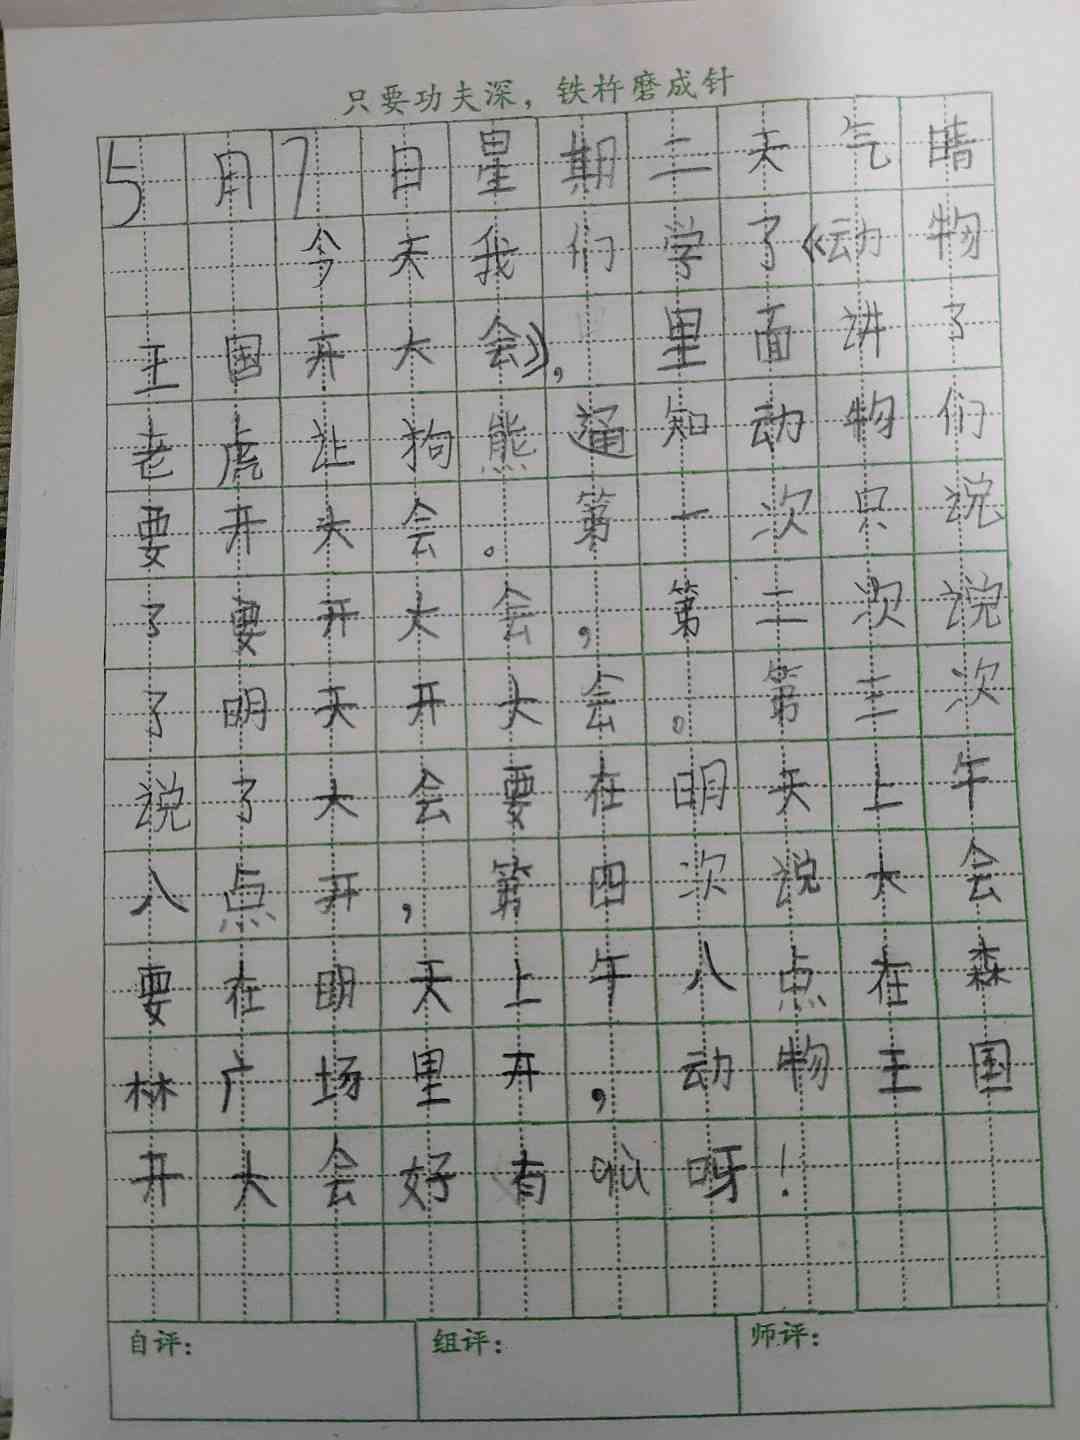 只要功夫深，铁杵磨成针
5月7日星期二天气晴
今天我们学了《动物
王国开大会》，里面讲了
老虎让狗熊通知动物们
要开大会。第一次只说
了要开大会，第二次说
了明天开大会。第三次
说了大会要在明天上午
八点开，第四次说大会
要在明天上午八点在森
林广场里开，动物王国
开大会好有yi呀！
自评：
组评：
师评：